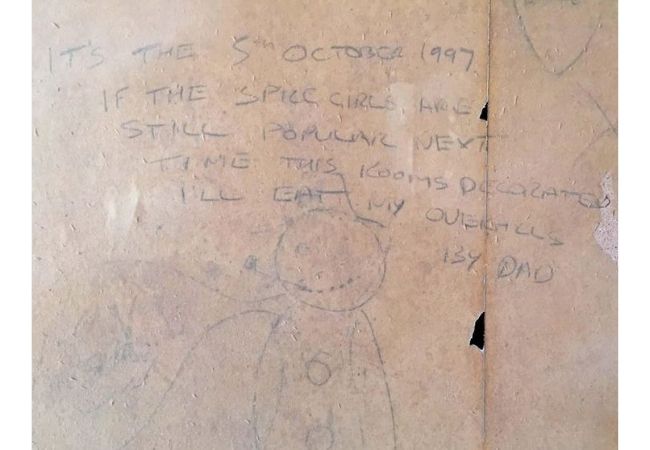 IT'S THE 5TH OCTOBER 1997.
IF THE SPICE GIRLS ARE
STILL POPULAR NEXT
TIME THIS ROOMS DECORATED
I'LL EAT MY OVERALLS
BY DAD